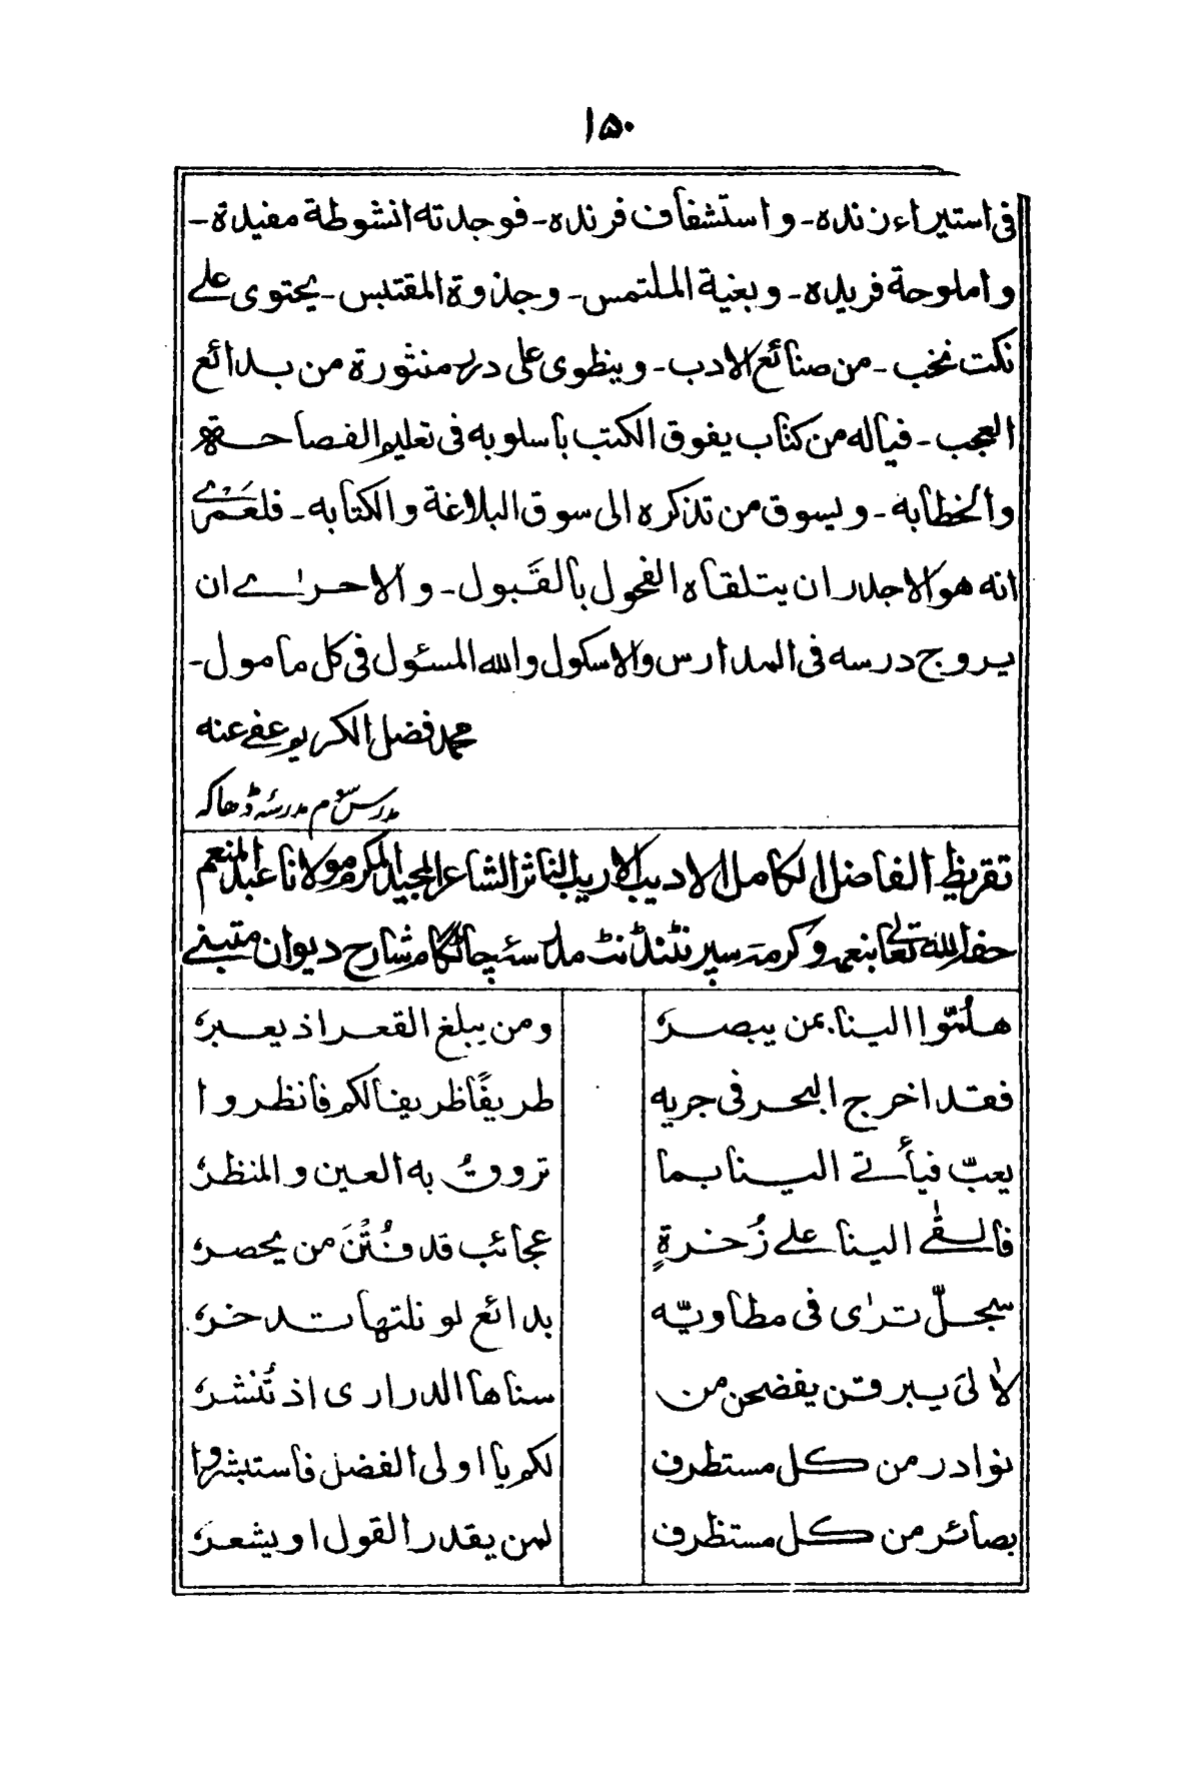 ۱۵۰
فی استیراء زنده۔ و استشفاف فرنده۔ فوجدته انشوطة مفیدة۔
و املوحة فریده۔ و بغیة الملتمس۔ و جذوة المقتبس۔ یحتوی علے
نکت نخب۔ من صنائع الادب۔ و ینطوی علی درر منثورة من بدائع
العجب۔ فیاله من کتاب یفوق الکتب باسلوبه فی تعلیم الفصاحة
والخطابه۔ و یسوق من تذکره الی سوق البلاغة والکتابه۔ فلعمرے
انه هو الاجدر ان یتلقاه الفحول بالقَبول۔ و الاحرٰے ان
یروج درسه فی المدارس والاسکول والله المسئول فی کل مامول۔
محمد فضل الکریم عفے عنه
مدرس سوم مدرسۂ ڈھاکہ
تقریظ الفاضل الکامل الادیب الاریب الناثر الشاعر المجید المکرم مولانا عبد المنعم
حفظہ اللہ تعالی بنعمہ و کرمہ سپرنٹنڈنٹ مدرسۂ چاٹگام شارح دیوان متبنے
هلمّوا الینا بمن یبصرُ ومن یبلغ القعر اذ یعبرُ
فقد اخرج البحر فی جریه طریفًا ظریفا لکم فانظروا
یعبّ فیأتے الینا بما تروقُ به العین و المنظرُ
فالقٰے الینا علے زُخرةٍ عجائب قد فُتْنَ من یحصرُ
سجلّ ترٰی فی مطاویّه بدائع لو نلتها تدخرُ
لاٰلیَ یبرقن یفضحن من سناها الدراری اذ تُنشرُ
نوادر من کل مستطرف لکم یا اولی الفضل فاستبشروا
بصائر من کل مستظرف لمن یقدر القول او یشعرُ